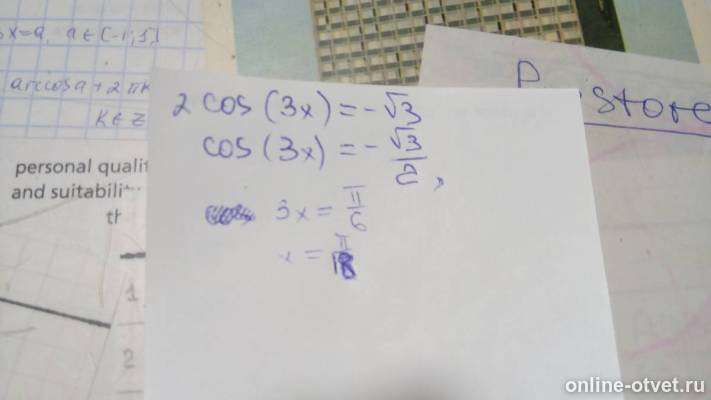 x=a, a∈[-1;1]
arccosa+2πk
k∈Z
personal qualit
and suitabili
th
1
2
2 cos (3x) = -√3
cos (3x) = -√3/2,
3x = π/6
x = π/18
store
online-otvet.ru